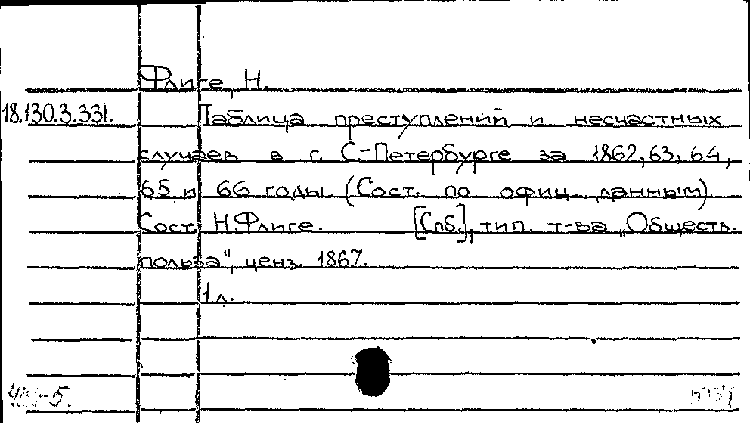 Флиге, Н.
18.130.3.331. Таблица преступлений и несчастных
случаев в г. С-Петербурге за 1862, 63, 64,
65 и 66 годы (Сост. по офиц. данным).
Сост. Н.Флиге. [Спб.], тип. т-ва „Обществ.
польза", ценз. 1867.
1 л.